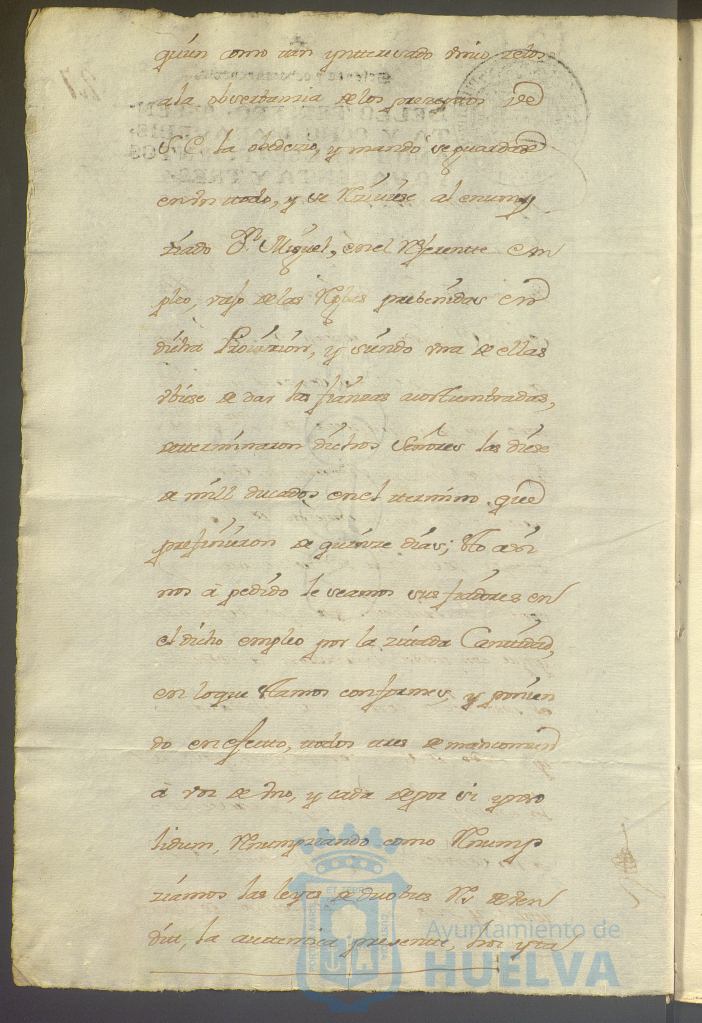 quien como tan ynteresado unio zelos
a la obserbanzia de los prezeptos de
V. E. la obedezio, y mando se guardase
en un todo, y se Reziuiese al enunz
ziado Dn. Miguel, en el Referente em
pleo, vajo de las Reglas prebenidas en
dicha Prouizion, y siendo una de ellas
ubiese de dar las fianzas acostumbradas,
determinaron dichos Señores las diese
de mill ducados en el termino que
prefinieron de quinze dias; No
nos à pedido le seamos sus fiadores en
el dicho empleo por la zitada Cantidad,
en lo que estamos conformes, y ponien
do en efecto, todos tres de mancomun
à voz de uno, y cada de por si ynso
lidum, Renumpziando como Renump
ziamos las leyes de duobus Rs deven
di, la autentica presente, hoc yta
Ayuntamiento de
HUELVA